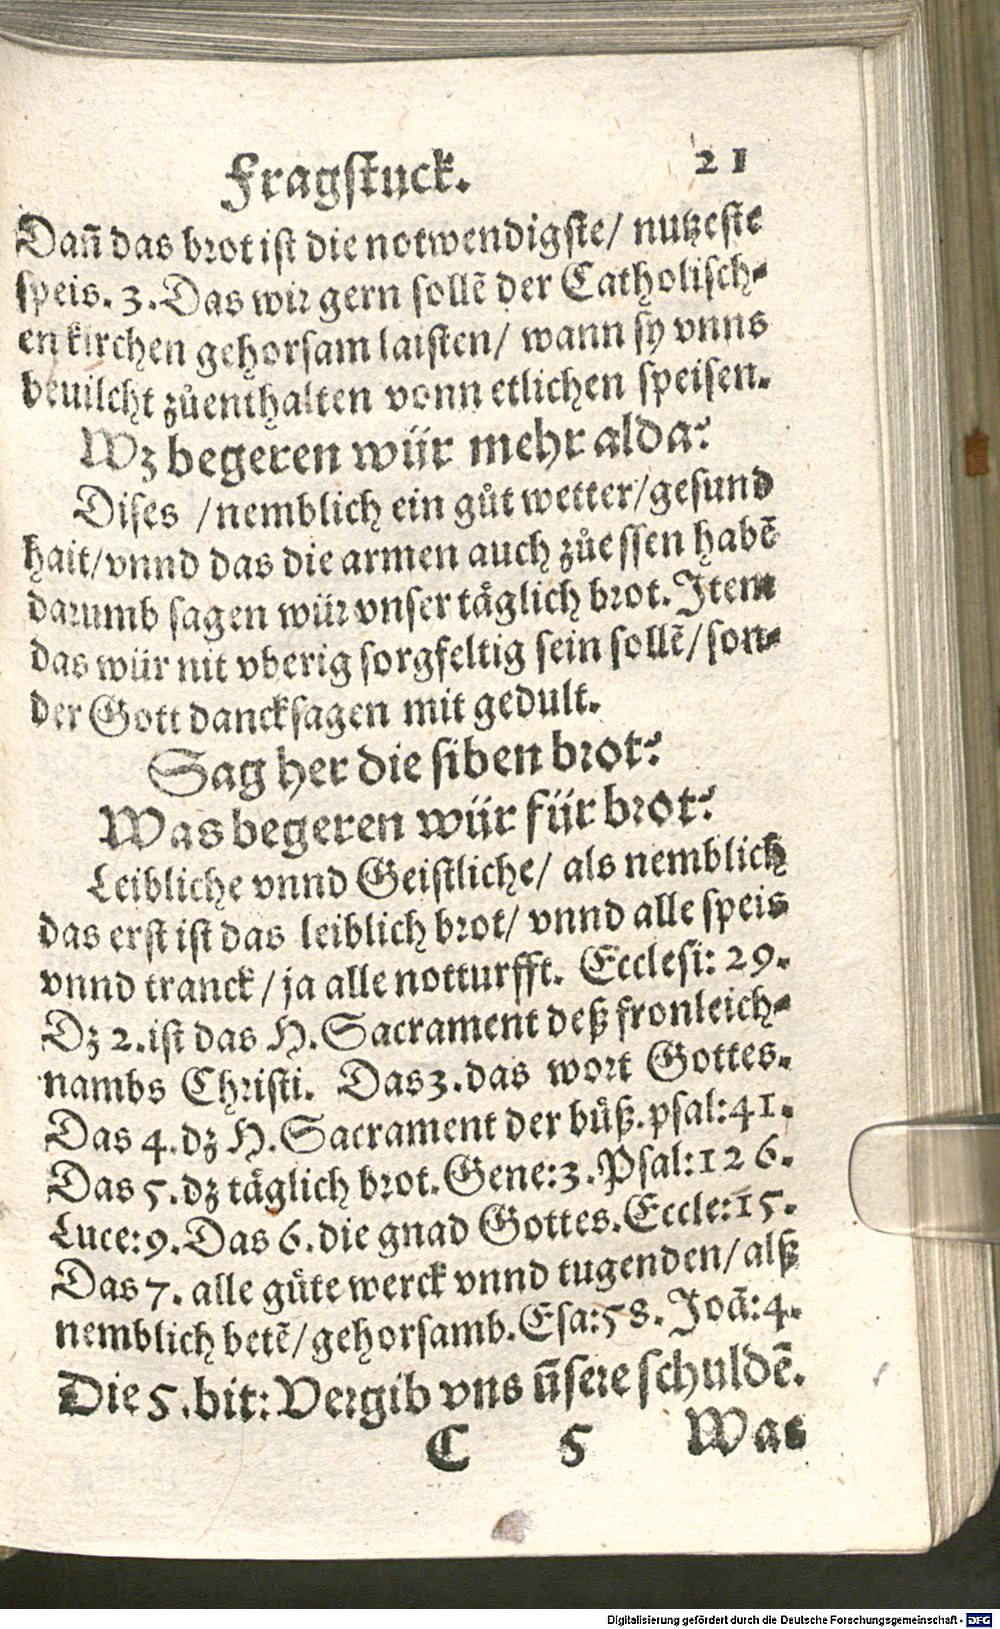 Fragstuck. 21
Dañ das brot ist die notwendigste/ nutzeste
speis. 3. Das wir gern sollẽ der Catholisch-
en kirchen gehorsam laisten/ wann sy vnns
beuilcht zůenthalten vonn etlichen speisen.
Wz begeren wür mehr alda?
Dises /nemblich ein gůt wetter/gesund
hait/vnnd das die armen auch zůessen habẽ
darumb sagen wür vnser täglich brot. Item
das wür nit vberig sorgfeltig sein sollẽ/ son-
der Gott dancksagen mit gedult.
Sag her die siben brot?
Was begeren wür für brot?
Leibliche vnnd Geistliche/ als nemblich
das erst ist das leiblich brot/ vnnd alle speis
vnnd tranck/ ja alle notturfft. Ecclesi: 29.
Dz 2. ist das H. Sacrament deß fronleich-
nambs Christi. Das 3. das wort Gottes.
Das 4. dz H. Sacrament der bůß. psal: 41.
Das 5. dz täglich brot. Gene: 3. Psal: 126.
Luce: 9. Das 6. die gnad Gottes. Eccle: 15.
Das 7. alle gůte werck vnnd tugenden/ alß
nemblich betẽ/ gehorsamb. Esa: 58. Joã: 4.
Die 5. bit: Vergib vns ũsere schuldẽ.
C 5 Was
Digitalisierung gefördert durch die Deutsche Forschungsgemeinschaft - DFG